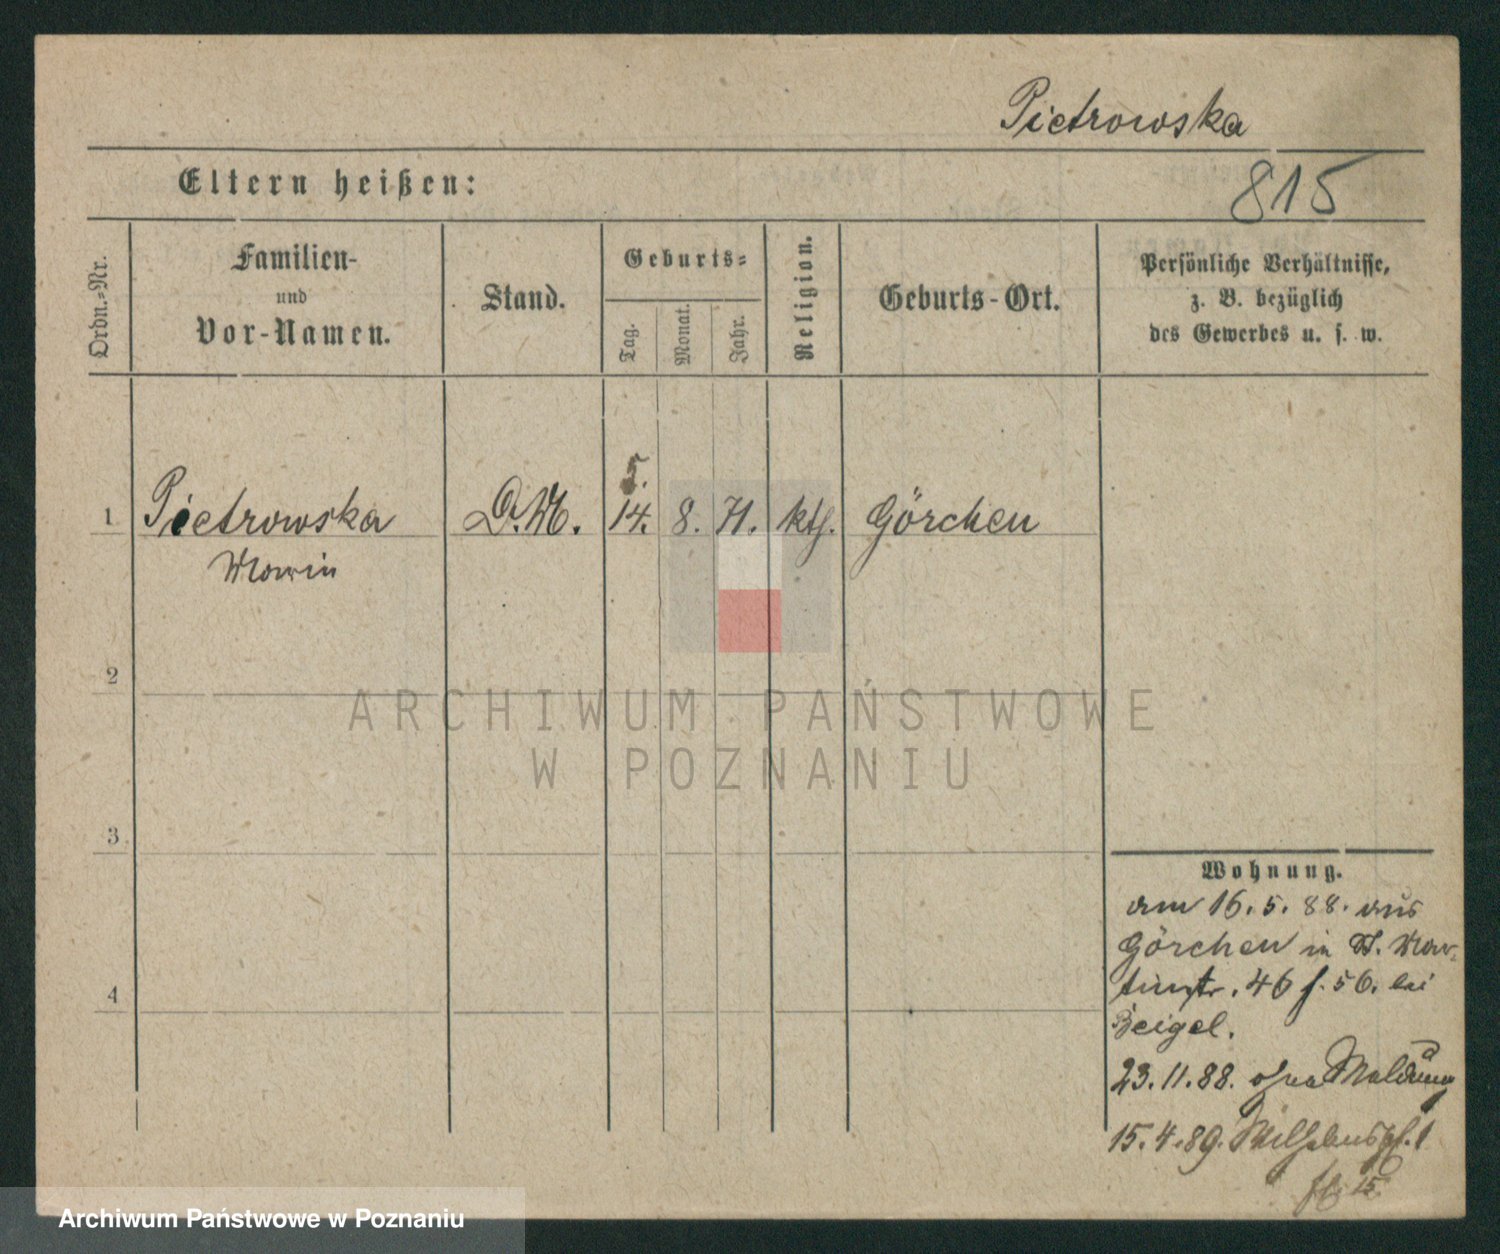 Pietrowska
Eltern heißen:
815
Ordn.-Nr.
Familien-
und
Vor-Namen.
Stand.
Geburts-
Tag.
Monat.
Jahr.
Religion.
Geburts-Ort.
Persönliche Verhältnisse,
z. B. bezüglich
des Gewerbes u. s. w.
5.
1 Pietrowska D.M. 14. 8. 71. kth. Görchen
Marie
2
ARCHIWUM PAŃSTWOWE
W POZNANIU
3
Wohnung.
am 16. 5. 88. aus
Görchen in St. Mar-
tinstr. 46 f. 56. bei
Beigel.
4
23. 11. 88. ohne Meldung
15. 4. 89. Wilhelmspl. 1
15.
Archiwum Państwowe w Poznaniu